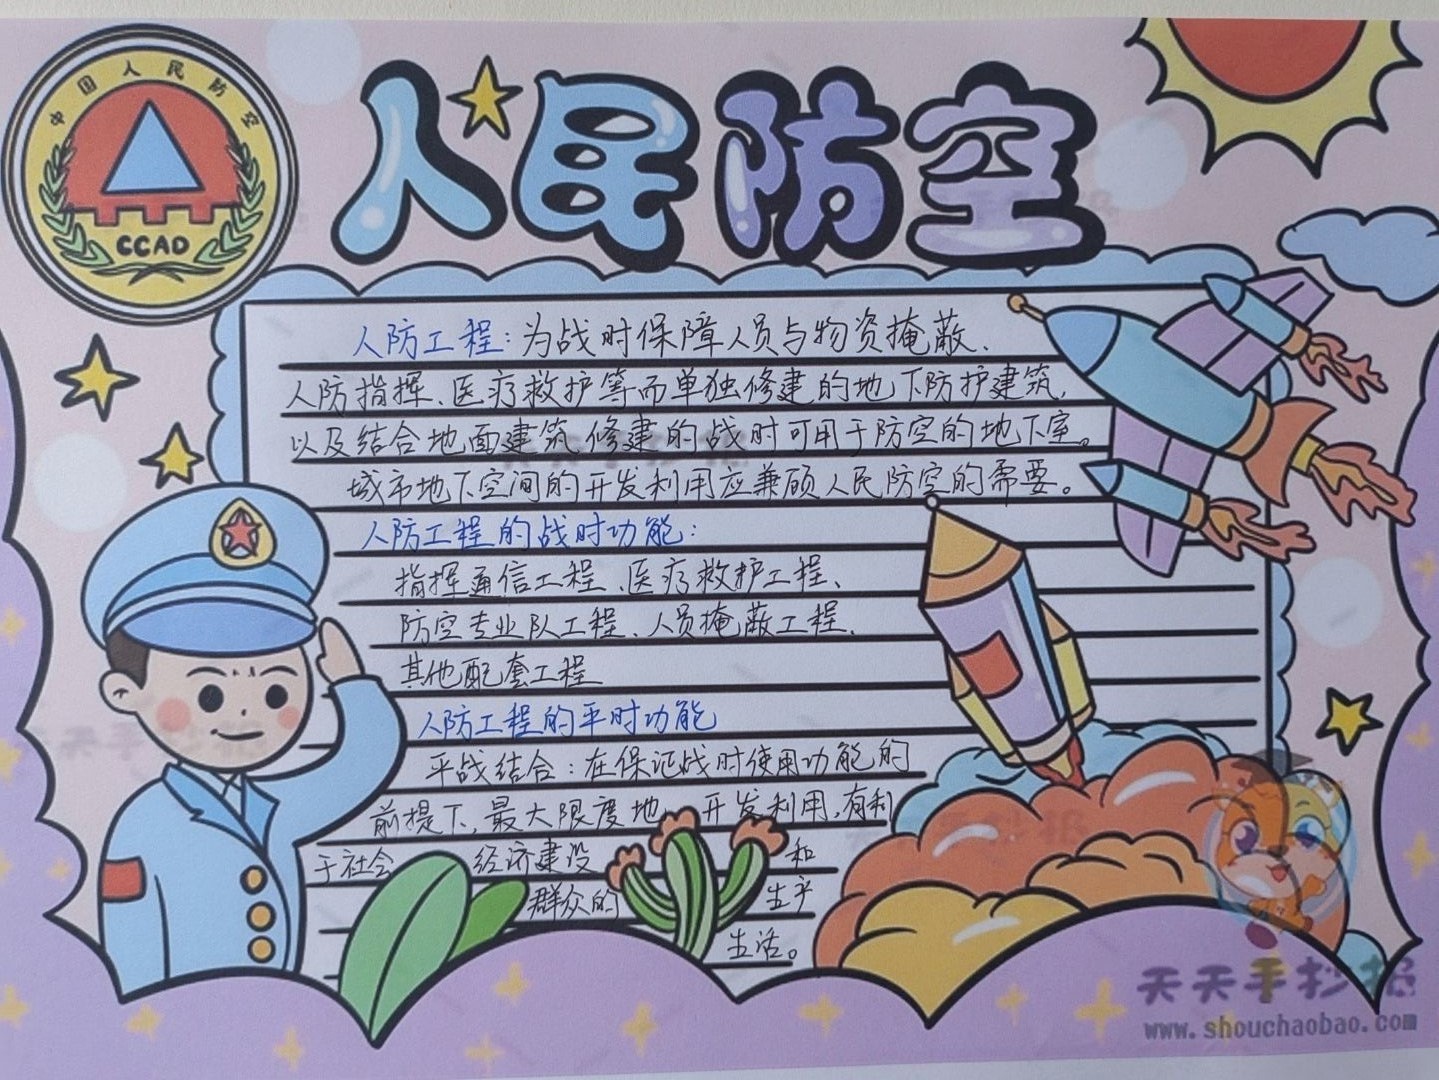 中国人民防空
CCAD
人民防空
人防工程：为战时保障人员与物资掩蔽、
人防指挥、医疗救护等而单独修建的地下防护建筑，
以及结合地面建筑修建的战时可用于防空的地下室。
城市地下空间的开发利用应兼顾人民防空的需要。
人防工程的战时功能：
指挥通信工程、医疗救护工程、
防空专业队工程、人员掩蔽工程、
其他配套工程
人防工程的平时功能
平战结合：在保证战时使用功能的
前提下，最大限度地 开发利用，有利
于社会 经济建设 和
群众的 生产
生活。
天天手抄报
www.shouchaobao.com